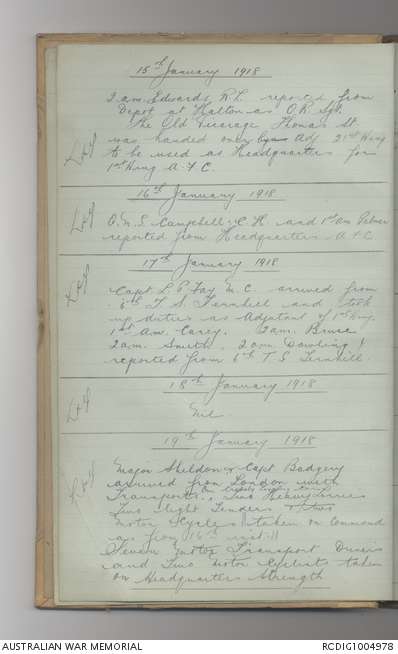 15th January 1918
2 am. Edwards R.L. reported from
Depot at Halton as O.R. Sgt.
The Old Vicarage Thomas St.
was handed over by Adj 21st Wing
to be used as Headquarters for
1st Wing A.F.C.
16th January 1918
Q.M.S. Campbell C.H. and 1st Am Palmer
reported from Headquarters A.F.C
17th January 1918
Capt L.P. Fay M.C. arrived from
6th T.S. Ternhill and took
up duties as Adjutant of 1st Wing.
1st Am. Carey. 2am. Bruse
2am. Smith. 2am Dowling
reported from 6th T S Ternhill.
18th January 1918
Nil
19th January 1918
Major Sheldon & Capt Badgery
arrived from London with
Transport. Two Heavy Lorries
Two light Tenders & two
Motor Cycles taken on Command
as from 16th inst.
Seven Motor Transport Drivers
and Two Motor Cyclists taken
on Headquarters Strength
AUSTRALIAN WAR MEMORIAL
RCDIG1004978